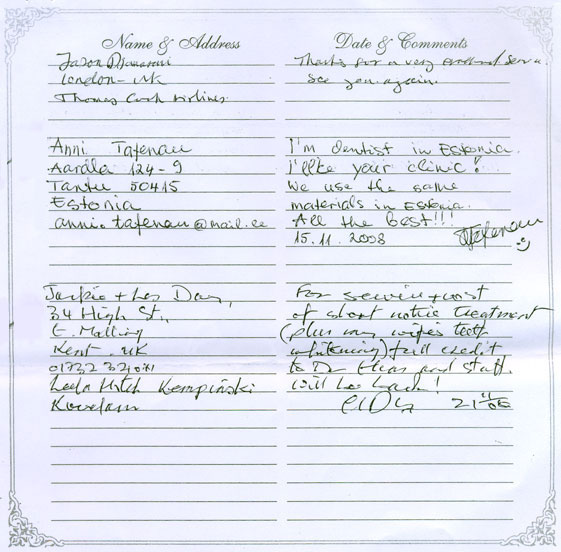 Name & Address
Jason
London - UK
Thomas Cook Airlines.
Anni Tafenau
Aardla 124-9
Tartu 50415
Estonia
anni.tafenau@mail.ee
Jackie + Les Day,
34 High St.,
E. Malling
Kent. UK
Leela Hotel Kempinski
Kovalam
Date & Comments
Thanks for a very
See you again.
I'm dentist in Estonia.
I'like your clinic!
We use the same
materials in Estonia.
All the best!!!
15.11.2008
For service + cost
of short notice treatment
(plus my wife's teeth
whitening) full credit
to Dr and staff.
Will be back!